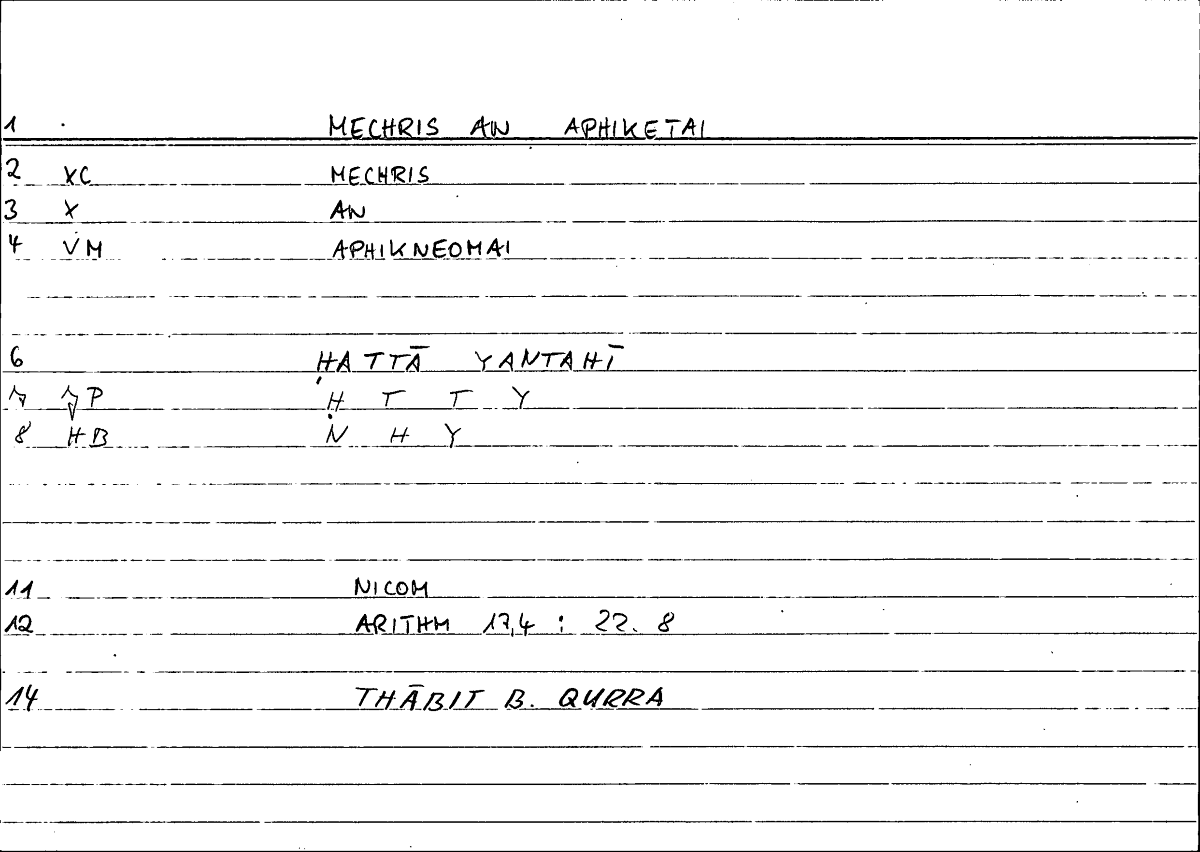 1 MECHRIS AN APHIKETAI
2 XC MECHRIS
3 X AN
4 VM APHIKNEOMAI
6 ḤATTĀ YANTAHĪ
7 7P Ḥ T T Y
8 HB N H Y
11 NICOM
12 ARITHM 17,4 : 22. 8
14 THĀBIT B. QURRA